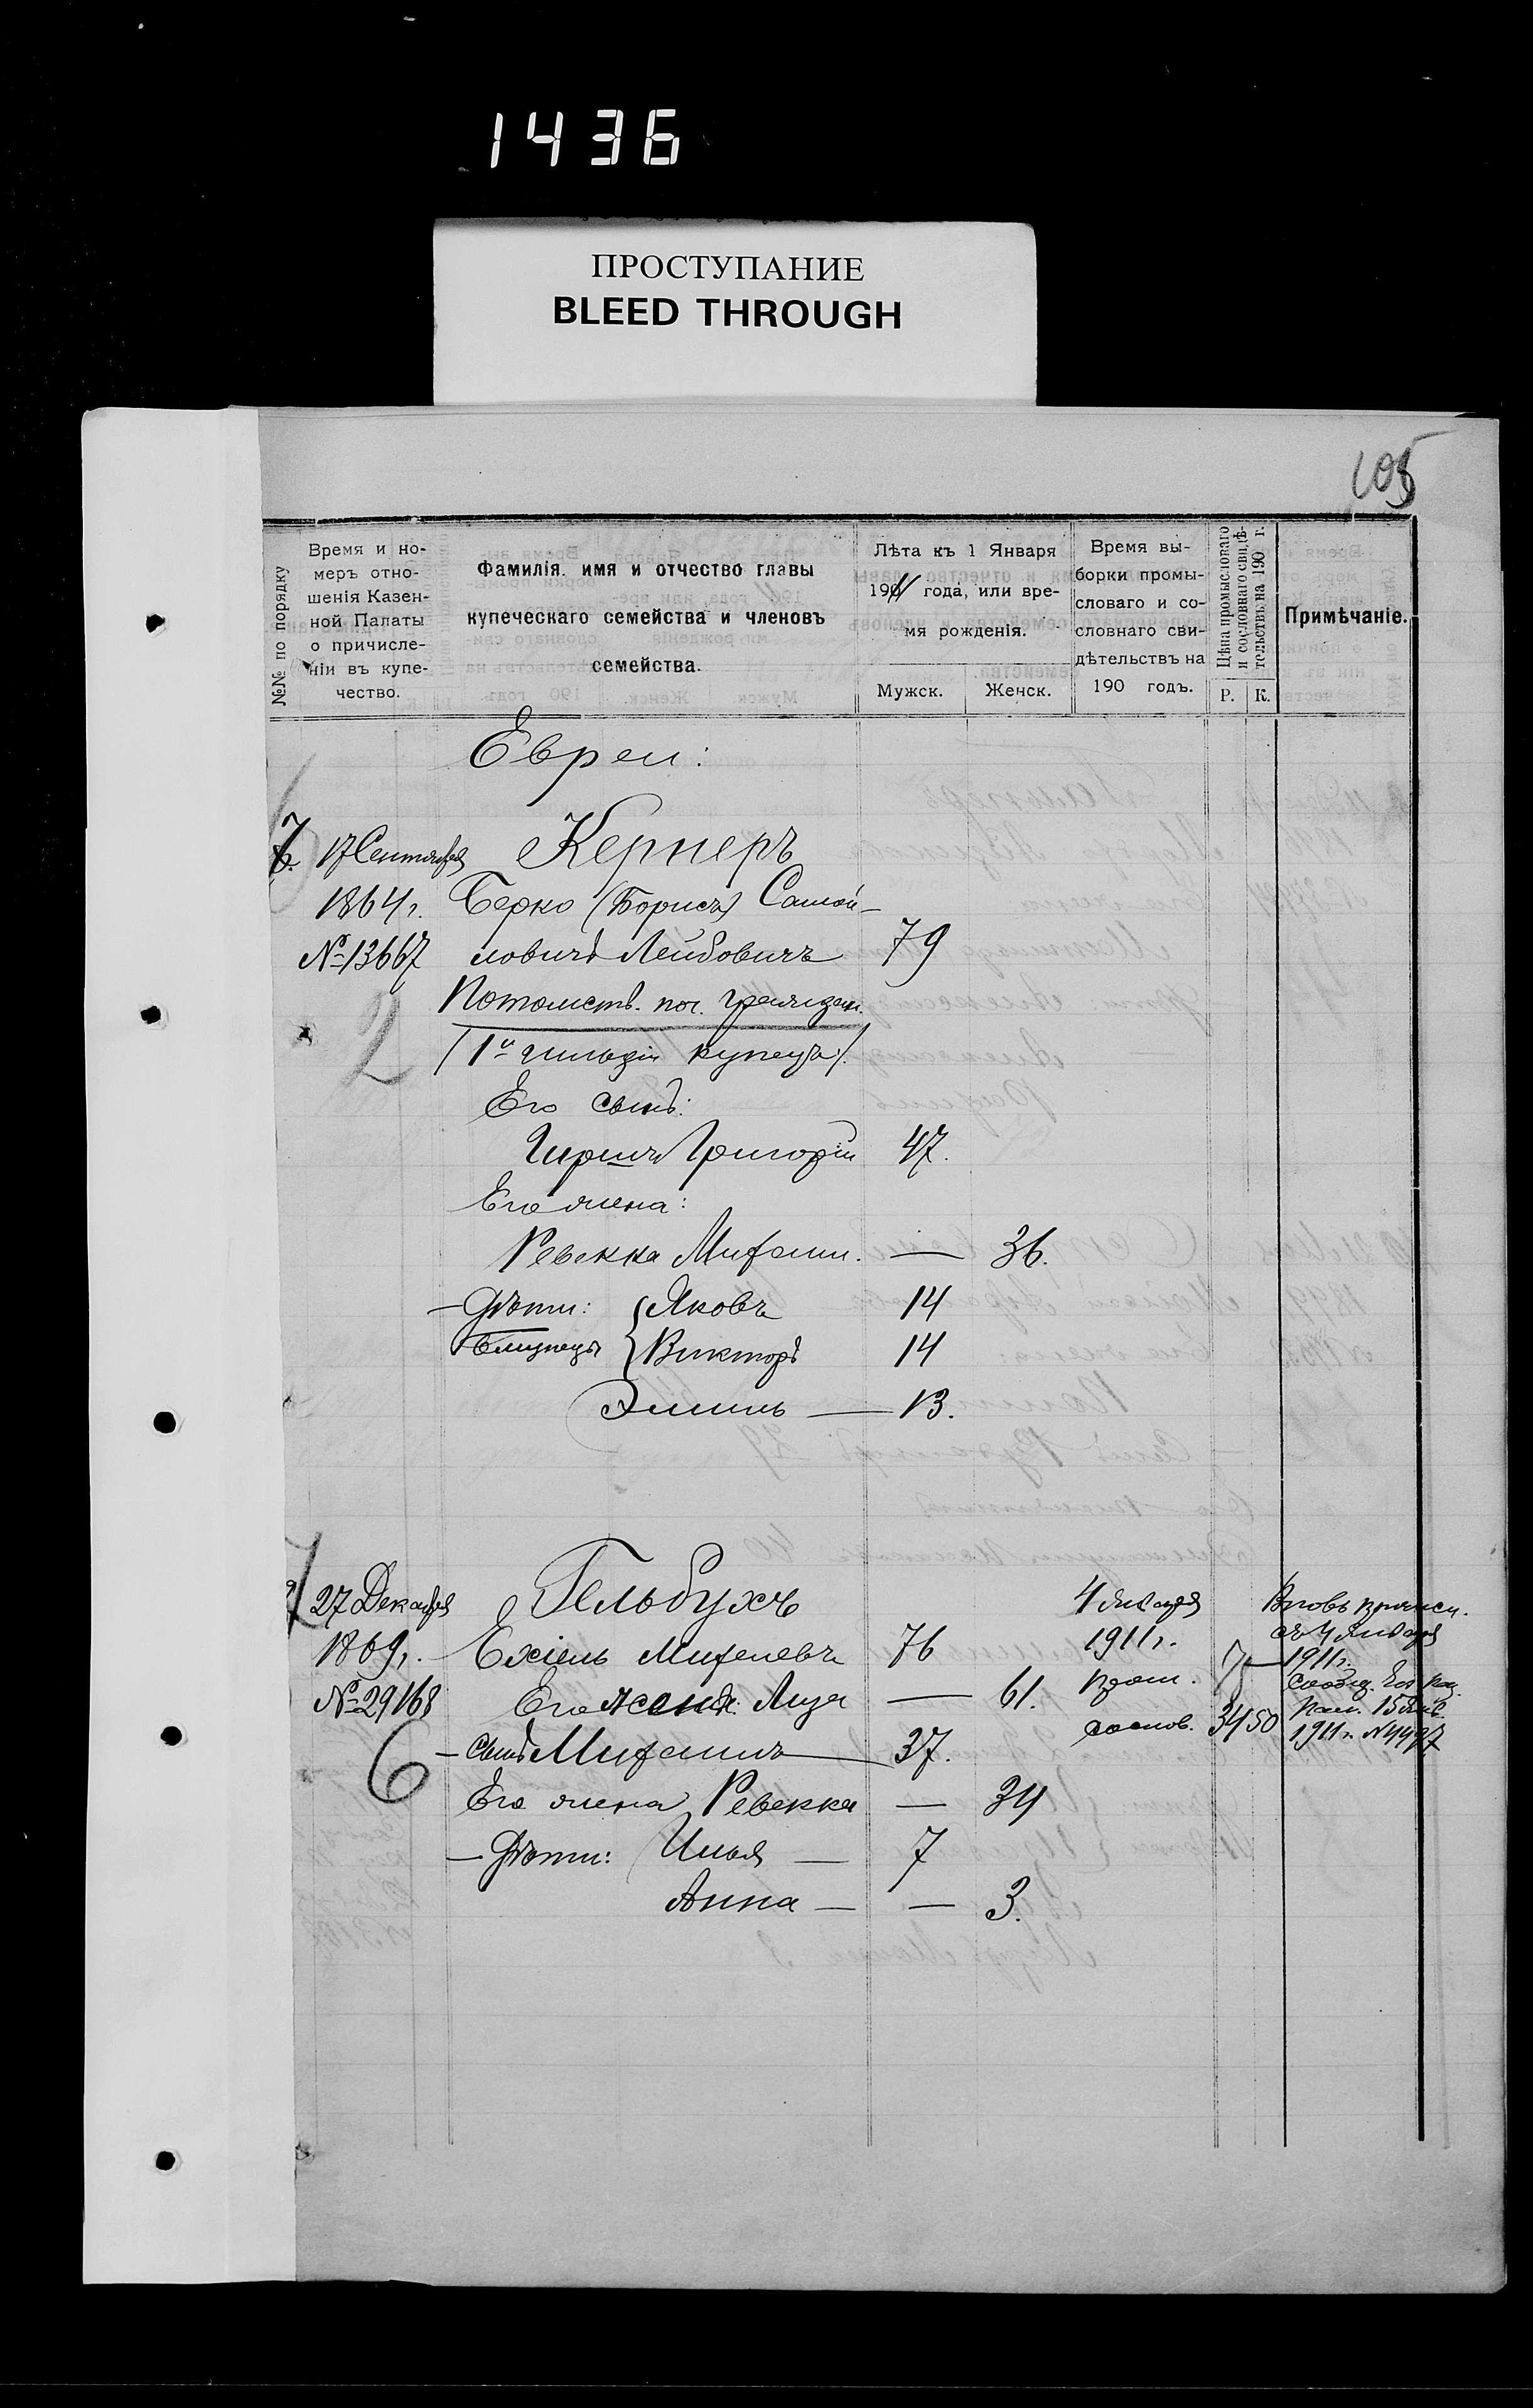 1436
ПРОСТУПАНИЕ
BLEED THROUGH
105
№№ по порядку
Время и но-
меръ отно-
шенія Казен-
ной Палаты
о причисле-
ніи въ купе-
чество.
Фамилія. имя и отчество главы
купеческаго семейства и членовъ
семейства.
Лѣта къ 1 Января
1911 года, или вре-
мя рожденія.
Мужск.
Женск.
Время вы-
борки промы-
словаго и со-
словнаго сви-
дѣтельствъ на
190 годъ.
Цѣна промысловаго
и сословнаго свидѣ-
тельствъ на 190 г.
Р. К.
Примѣчаніе.
Евреи:
7. 17 Сентября Кернеръ
1864 г. Берко (Борисъ) Самой-
№ 13667 ловичъ Лейбовичъ 79
2 Потомств. поч. граждан.
(1й гильдіи купецъ).
Его сынъ:
Гиршъ Григорій 47.
Его жена:
Ревекка Михаил. — 36.
— Дѣти: Яковъ 14
близнецы Викторъ 14
Эмиль — 13.
27 Декабря Гельбухъ 4 Января Вновь
1869 г. Ехіель Михелевъ 76 1911 г. съ 4 Января
№ 29168 Его жена: Лиза — 61. пром. 75 — 1911 г.
6 — сынъ Михаилъ — 37. сослов. 34 50 1911 г. № 4497
Его жена Ревекка — 34
— Дѣти: Илья — 7
Анна — — 3.